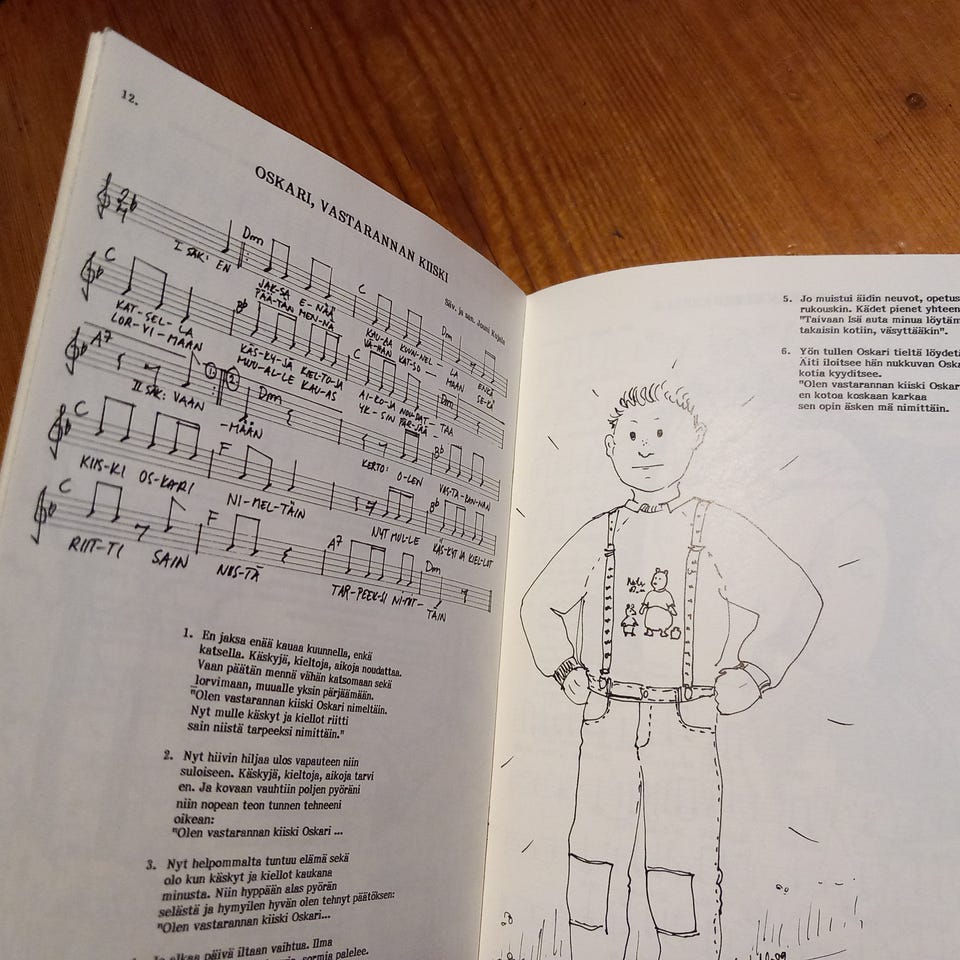 12.
OSKARI, VASTARANNAN KIISKI
Säv. ja san. Jouni
I SÄK: EN JAK-SA E-NÄÄ KAU-AA KUUN-NEL- LA ENKÄ
PÄÄ-TÄN MEN-NÄ VÄ-HÄN KAT-SO- MAAN SE-KÄ
KAT-SEL- LA KÄS-KY-JÄ KIEL-TO-JA AI-KO-JA NOU-DAT- TAA
LOR-VI- MAAN MUU-AL-LE YK-SIN PÄR-JÄÄ-
II SÄK: VAAN -MÄÄN KERTO: O-LEN VAS-TA-RAN-NAN
KIIS-KI OS-KARI NI-MEL-TÄIN NYT MUL-LE KÄS-KYT JA KIEL-LOT
RIIT-TI SAIN NIIS-TÄ TAR-PEEK-SI NI-MIT- TÄIN
1. En jaksa enää kauaa kuunnella, enkä
katsella. Käskyjä, kieltoja, aikoja noudattaa.
Vaan päätän mennä vähän katsomaan sekä
lorvimaan, muualle yksin pärjäämään.
"Olen vastarannan kiiski Oskari nimeltäin.
Nyt mulle käskyt ja kiellot riitti
sain niistä tarpeeksi nimittäin."
2. Nyt hiivin hiljaa ulos vapauteen niin
suloiseen. Käskyjä, kieltoja, aikoja tarvi
en. Ja kovaan vauhtiin poljen pyöräni
niin nopean teon tunnen tehneeni
oikean:
"Olen vastarannan kiiski Oskari ...
3. Nyt helpommalta tuntuu elämä sekä
olo kun käskyt ja kiellot kaukana
minusta. Niin hyppään alas pyörän
selästä ja hymyilen hyvän olen tehnyt päätöksen:
"Olen vastarannan kiiski Oskari...
alkaa päivä iltaan vaihtua. Ilma
sormia palelee.
5. Jo muistui äidin neuvot, opetus
rukouskin. Kädet pienet yhteen
"Taivaan Isä auta minua löytäm
takaisin kotiin, väsyttääkin".
6. Yön tullen Oskari tieltä löydet
Äiti iloitsee hän nukkuvan Oska
kotia kyyditsee.
"Olen vastarannan kiiski Oskar
en kotoa koskaan karkaa
sen opin äsken mä nimittäin.